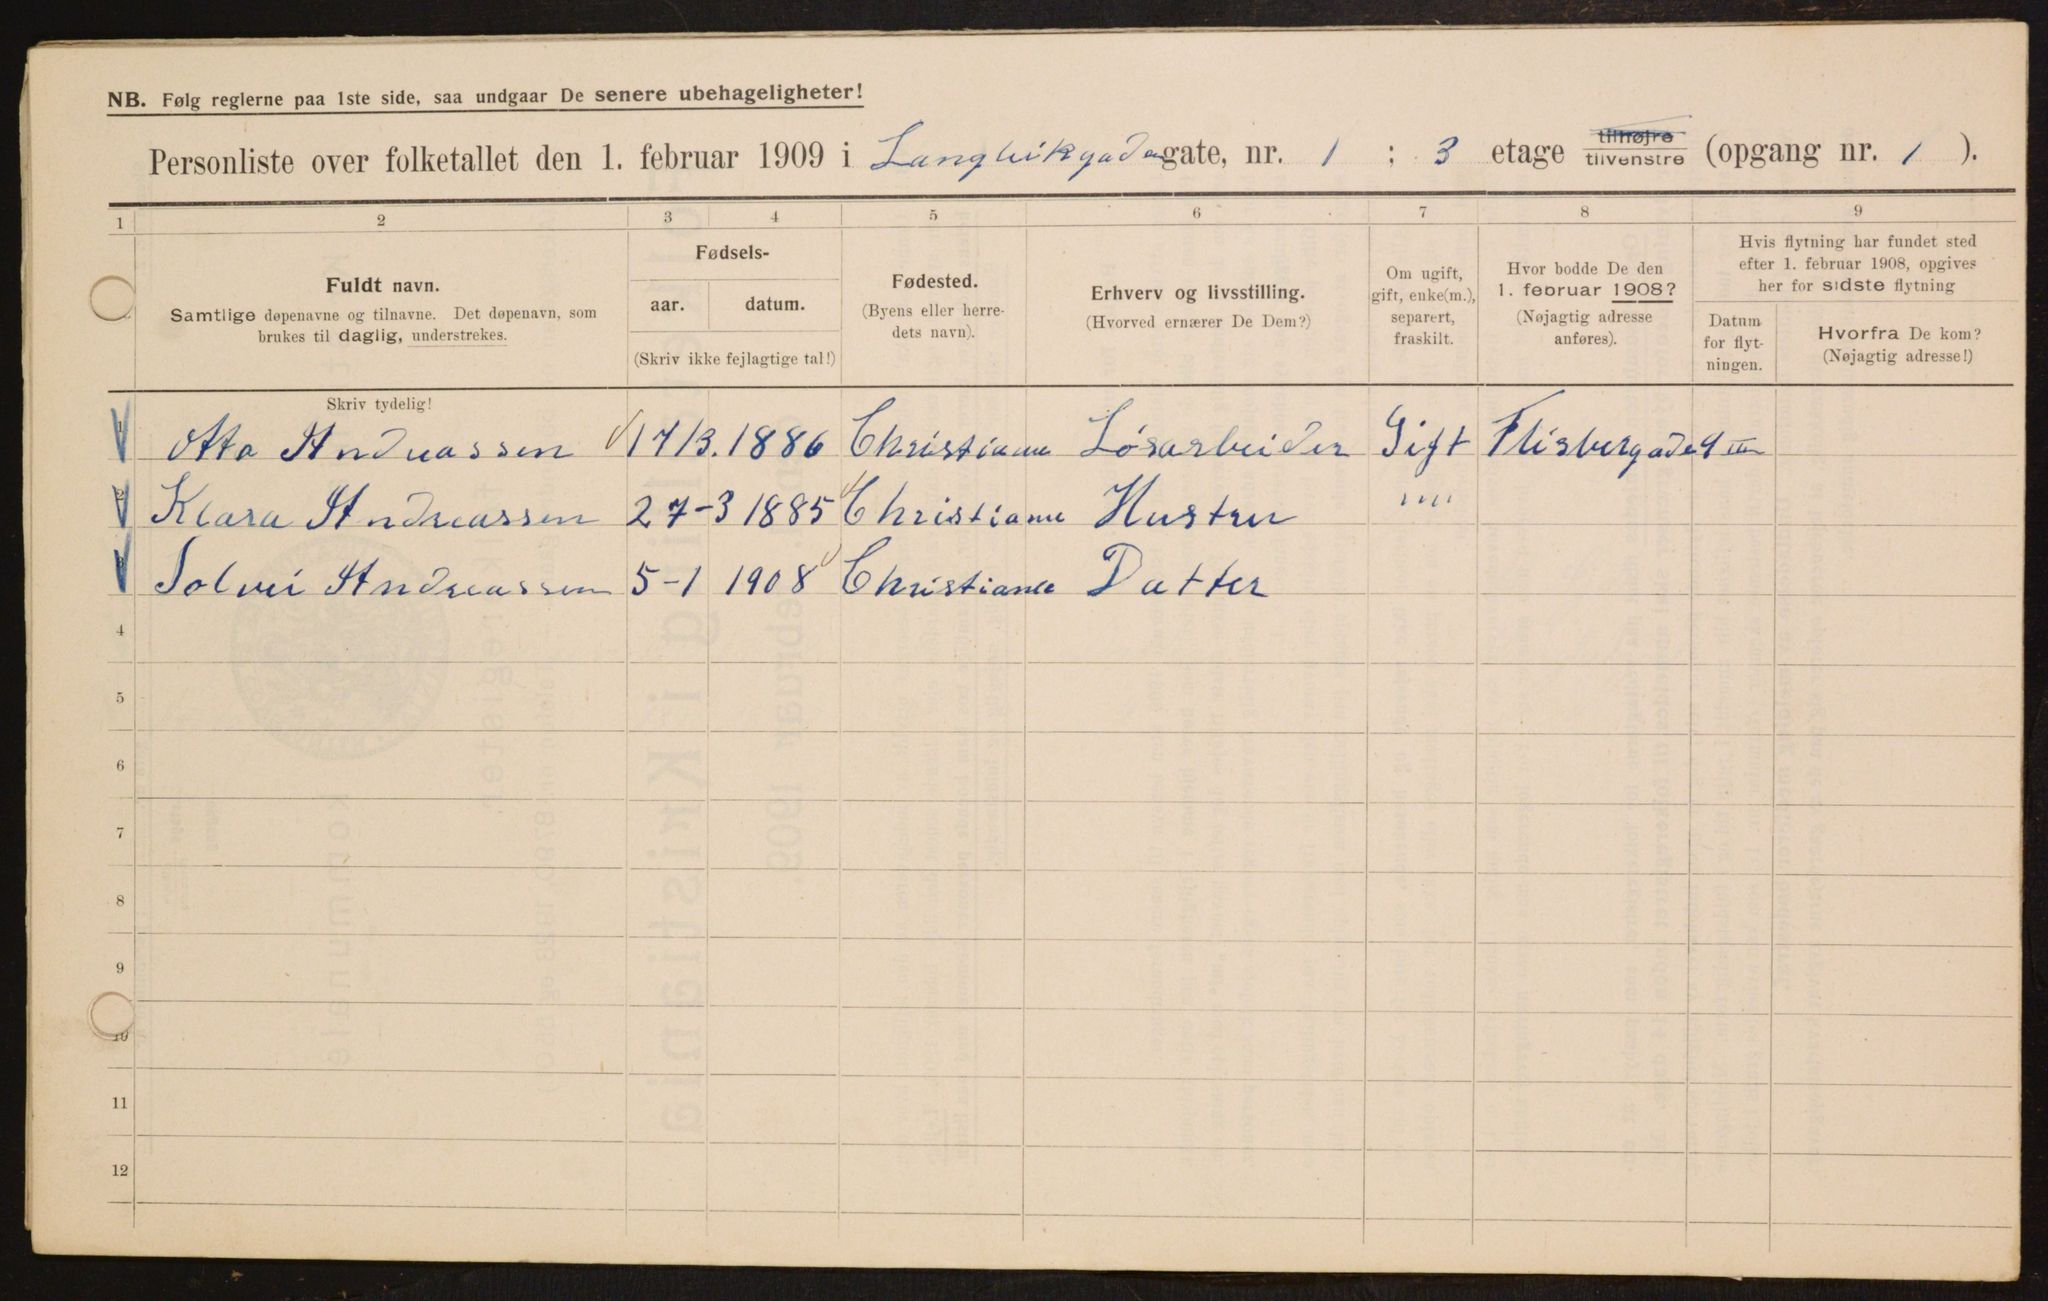 NB. Følg reglerne paa 1ste side, saa undgaar De senere ubehageligheter!
Personliste over folketallet den 1. februar 1909 i Langvikgadegate, nr. 1 ; 3 etage tilhøjre tilvenstre (opgang nr. 1 ).
1 2 3 4 5 6 7 8 9
Fuldt navn.
Samtlige døpenavne og tilnavne. Det døpenavn, som
brukes til daglig, understrekes.
Fødsels-
aar. datum.
(Skriv ikke fejlagtige tal!)
Fødested.
(Byens eller herre-
dets navn).
Erhverv og livsstilling.
(Hvorved ernærer De Dem?)
Om ugift,
gift, enke(m.),
separert,
fraskilt.
Hvor bodde De den
1. februar 1908?
(Nøjagtig adresse
anføres).
Hvis flytning har fundet sted
efter 1. februar 1908, opgives
her for sidste flytning
Datum
for flyt-
ningen.
Hvorfra De kom?
(Nøjagtig adresse!)
Skriv tydelig!
1 Otto Andreassen 17/3. 1886 Christiania Løsarbeider Gift Flisbergade 9 III
2 Klara Andreassen 27-3 1885 Christiania Hustru " "
3 Solvei Andreassen 5-1 1908 Christiania Datter
4
5
6
7
8
9
10
11
12